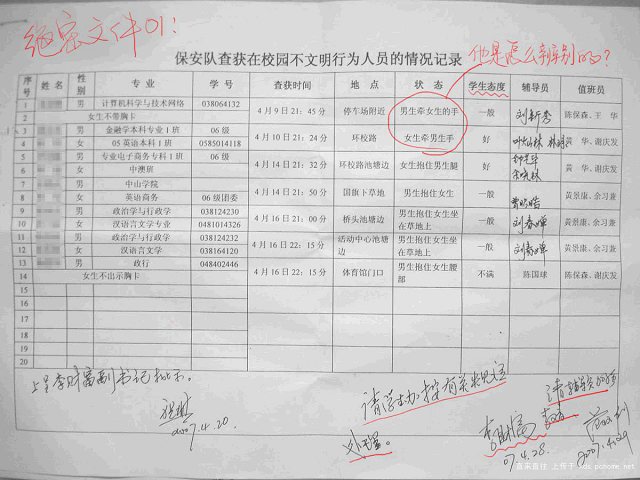 绝密文件01:
保安队查获在校园不文明行为人员的情况记录
他是怎么辨别的?
序号 姓名 性别 专业 学号 查获时间 地点 状态 学生态度 辅导员 值班员
1 男 计算机科学与技术网络 038064132 4月9日21:45分 停车场附近 男生牵女生的手 一般 陈保森、王 华
2 女生不带胸卡
3 男 金融学本科专业1班 06级 4月10日21:24分 环校路 女生牵男生手 好 黄 华、谢庆发
4 女 05英语本科1班 0585014118
5 男 专业电子商务专科1班 06级 4月14日21:32分 环校路池塘边 女生抱男生腿 好 黄 华、谢庆发
6 女 中澳班
7 男 中山学院 4月14日21:50分 国旗下草地 男生抱住女生 一般 黄景康、余习兼
8 女 英语商务 06级团委
9 男 政治学与行政学 038124230 4月16日21:00分 桥头池塘边 男生抱住女生坐在草地上 一般 刘春蝉 黄景康、余习兼
10 女 汉语言文学专业 0481014326
11 男 政治学与行政学 038124232 4月16日22:15分 活动中心池塘边 男生抱住女生坐在草地上 一般 黄景康、余习兼
12 女 汉语言文学 038164120
13 男 政行 048402446 4月16日22:15分 体育馆门口 男生抱住女生腰部 不满 陈国球 陈保森、谢庆发
14 女生不出示胸卡
15
16
17
18
19
20
上呈李财富副书记批示。
2007.4.20
请学生办按有关规定
处理。
李财富
07.4.28.
2007.4.29
直来直往 上传于 kds.pchome.net